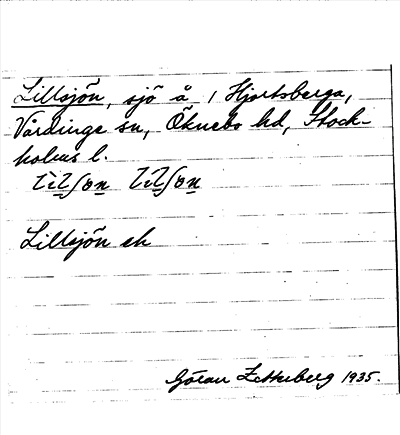 Lillsjön, sjö å 1 Hjortsberga,
Vårdinge sn, Öknebo hd, Stock-
holms l.
Lillsjön ek
Göran Zetterberg 1935.